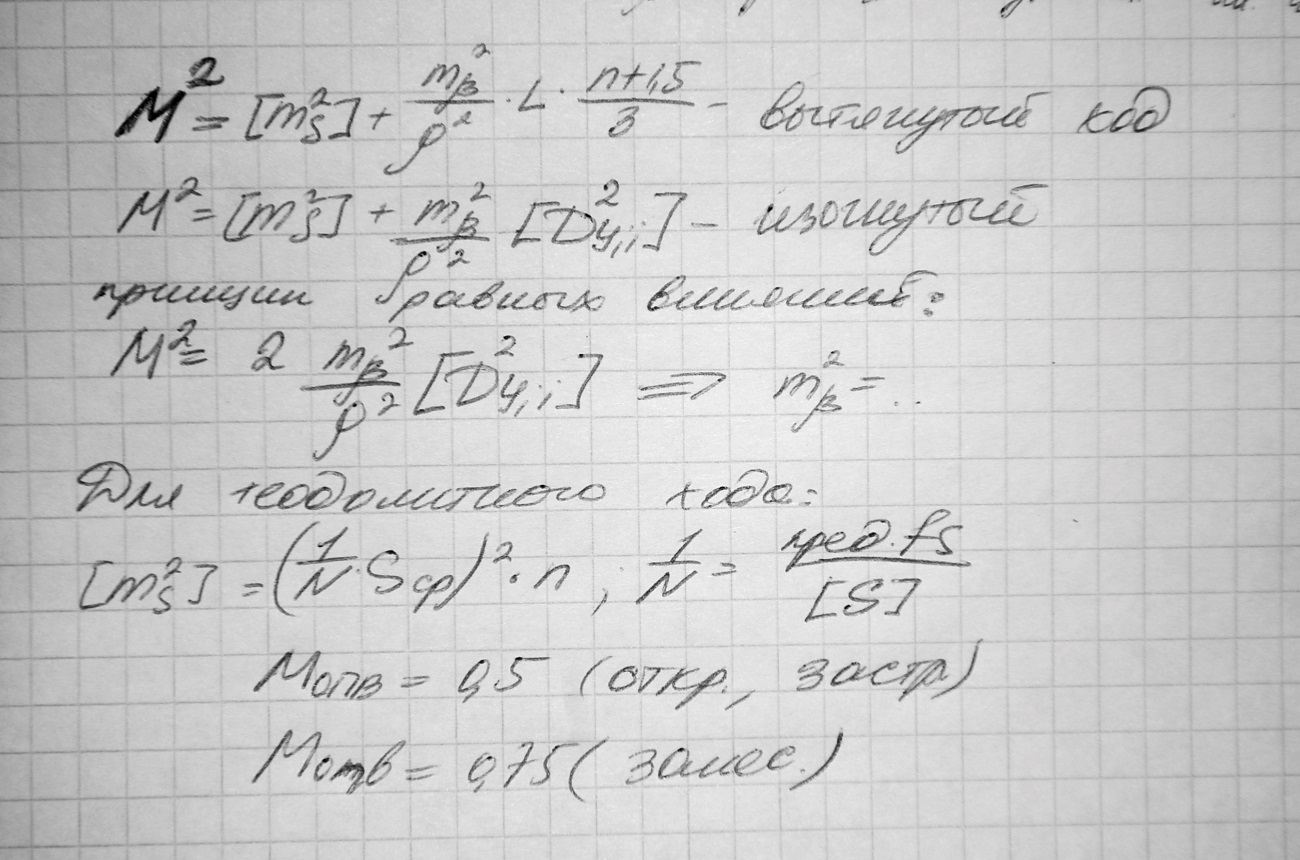 M² = [m²_S] + m_β²/ρ² · L · (n+1,5)/3 – вытянутый ход
M² = [m²_S] + m_β²/ρ² [D²_ц,i] – изогнутый
принцип равных влияний:
M² = 2 m_β²/ρ² [D²_ц,i] ⇒ m_β² = ..
Для теодолитного хода:
[m²_S] = (1/N · S_ср)² · n , 1/N = пред. fs/[S]
M_опв = 0,5 (откр., застр)
M_отв = 0,75 (залес.)